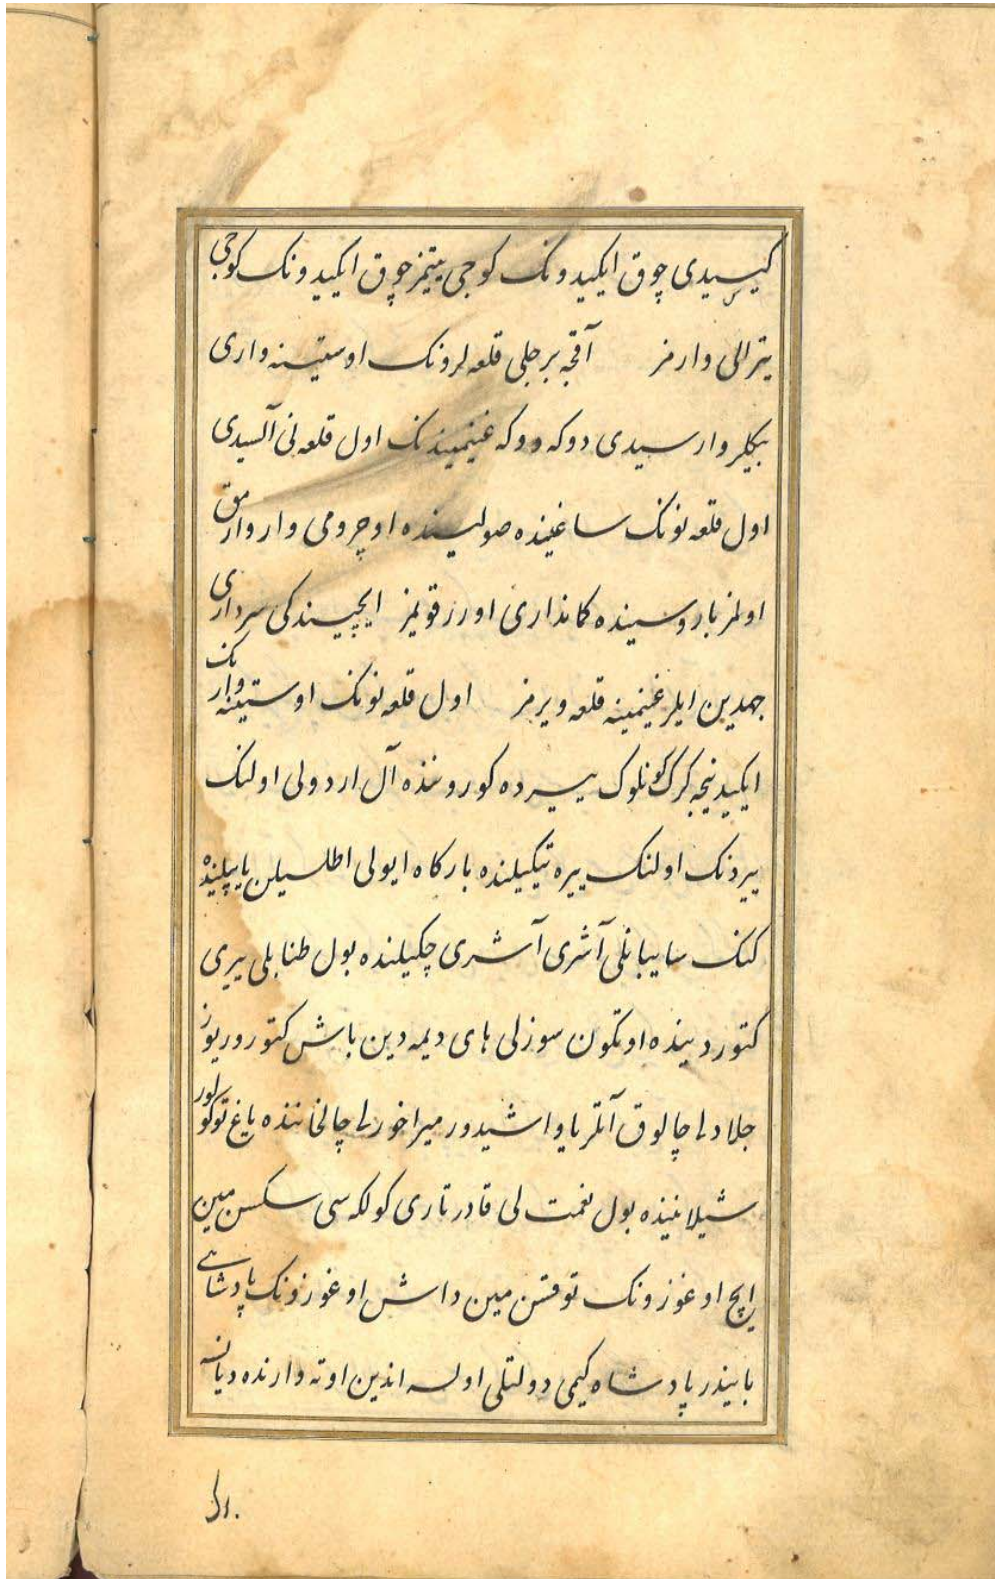 کیسیدی چوق ایکیدونک کوجی یتیمز چوق ایکیدونک کوجی
یترالی وارمز آقجه برجلی قلعه لرونک اوستینه واری
بیکلر وارسیدی دوکه دوکه غنیمیندنک اول قلعه نی آلسیدی
اول قلعه نونک ساغینده صولینده اوچرومی وار وارمق
اولمز باروسینده کمانداری اورر قویمز ایچیسیندکی سرداری
جهدین ایلر غنیمینه قلعه ویرمز اول قلعه نونک اوستینه وارنک
ایکید نیجه کرک کونلوک ییرده کوروننده آل اردولی اولنک
ییردنک اولنک ییره تیکیلنده بارکاه ایولی اطلسیلن یاپیلنده
کنک سایبانلی آشری آشری چکیلنده بول طنابلی ییری
کتوردینده اوتکون سوزلی های دیمه دین باش کتورور یوز
جلادلی چالوق آتلر یاواشیدور میراخورلی چالخاننده یاغ توکولور
شیلانینده بول نعمت لی قادر تاری کولکه سی سکسن مین
ایچ اوغوزونک توقسن مین داش اوغوزونک پادشاهی
بایندر پادشاه کیمی دولتلی اولسه اندین اوته وارنده دیانسه